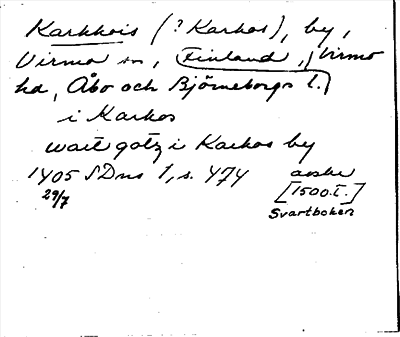 Karkkois (? Karkos), by,
Virmo sn, Finland, Virmo
hd, Åbo och Björneborgs l.
i Karkos
wart gotz i Karkos by
1405 SDns 1, s. 474 avskr
29/7 [1500-t.]
Svartboken